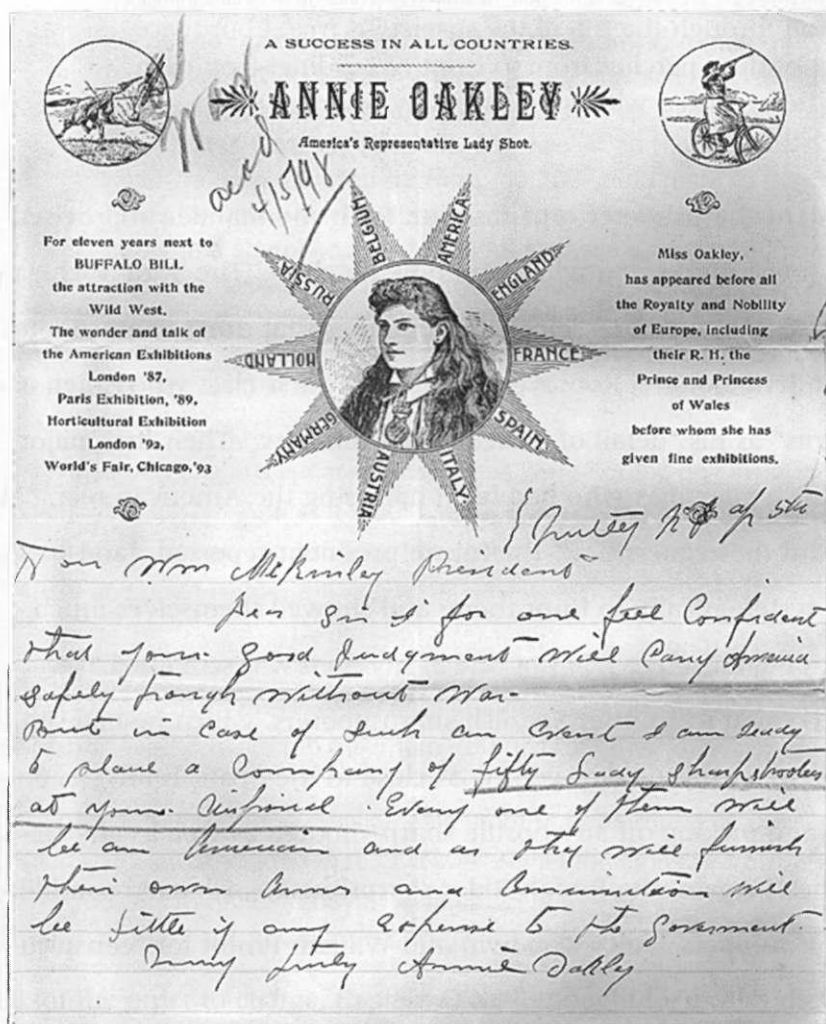 A SUCCESS IN ALL COUNTRIES.
ANNIE OAKLEY
America's Representative Lady Shot.
acod
4/5/98
For eleven years next to
BUFFALO BILL
the attraction with the
Wild West.
The wonder and talk of
the American Exhibitions
London '87,
Paris Exhibition, '89,
Horticultural Exhibition
London '92,
World's Fair, Chicago, '93
RUSSIA
BELGIUM
AMERICA
ENGLAND
FRANCE
SPAIN
ITALY
AUSTRIA
GERMANY
HOLLAND
Miss Oakley,
has appeared before all
the Royalty and Nobility
of Europe, including
their R. H. the
Prince and Princess
of Wales
before whom she has
given fine exhibitions.
Nutley NJ Ap 5th
Hon Wm McKinley President
Dear Sir I for one feel Confident
that your good judgment will carry America
safely trough without War-
But in case of such an event I am ready
to place a Company of fifty lady sharpshooters
at your disposal. Every one of them will
be an American and as they will furnish
their own Arms and Ammunition will
be little if any expense to the government
Very Truly Annie Oakley